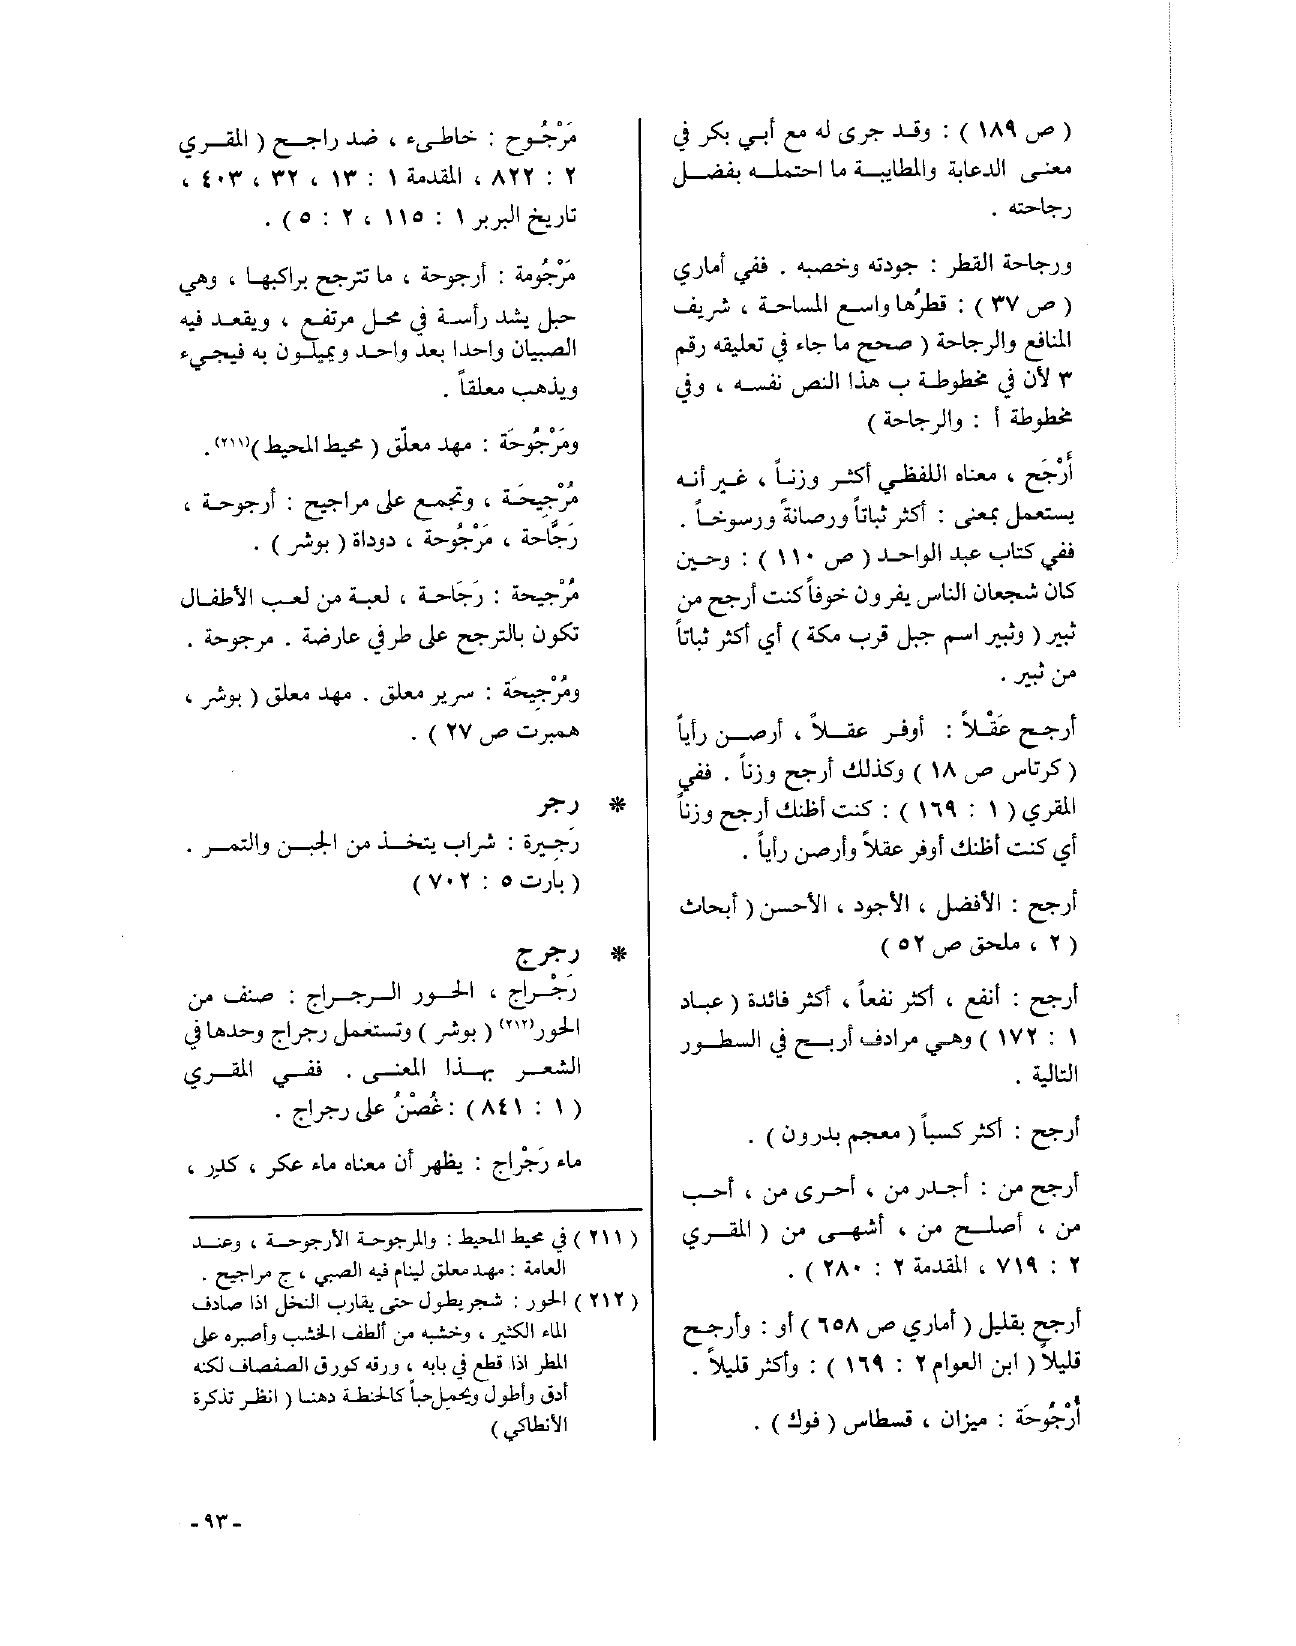 ( ص ١٨٩ ) : وقد جرى له مع أبي بكر في
معنى الدعابة والمطايبة ما احتمله بفضل
رجاحته .
ورجاحة القطر : جودته وخصبه . ففي أماري
( ص ٣٧ ) : قطرُها واسع المساحة ، شريف
المنافع والرجاحة ( صحح ما جاء في تعليقه رقم
٣ لأن في مخطوطة ب هذا النص نفسه ، وفي
مخطوطة أ : والرجاحة )
أَرْجَح ، معناه اللفظي أكثر وزناً ، غير أنه
يستعمل بمعنى : أكثر ثباتاً ورصانةً ورسوخاً .
ففي كتاب عبد الواحد ( ص ١١٠ ) : وحين
كان شجعان الناس يفرون خوفاً كنت أرجح من
ثبير ( وثبير اسم جبل قرب مكة ) أي أكثر ثباتاً
من ثبير .
أرجح عَقْلاً : أوفر عقلاً ، أرصن رأياً
( كرتاس ص ١٨ ) وكذلك أرجح وزناً . ففي
المقري ( ١ : ١٦٩ ) : كنت أظنك أرجح وزناً
أي كنت أظنك أوفر عقلاً وأرصن رأياً .
أرجح : الأفضل ، الأجود ، الأحسن ( أبحاث
( ٢ ، ملحق ص ٥٢ )
أرجح : أنفع ، أكثر نفعاً ، أكثر فائدة ( عباد
١ : ١٧٢ ) وهي مرادف أربح في السطور
التالية .
أرجح : أكثر كسباً ( معجم بدرون ) .
أرجح من : أجدر من ، أحرى من ، أحب
من ، أصلح من ، أشهى من ( المقري
٢ : ٧١٩ ، المقدمة ٢ : ٢٨٠ ) .
أرجح بقليل ( أماري ص ٦٥٨ ) أو : وأرجح
قليلاً ( ابن العوام ٢ : ١٦٩ ) : وأكثر قليلاً .
أُرْجُوحَة : ميزان ، قسطاس ( فوك ) .
مَرْجُوح : خاطىء ، ضد راجح ( المقري
٢ : ٨٢٢ ، المقدمة ١ : ١٣ ، ٣٢ ، ٤٠٣ ،
تاريخ البربر ١ : ١١٥ ، ٢ : ٥ ) .
مَرْجُومة : أرجوحة ، ما تترجح براكبها ، وهي
حبل يشد رأسة في محل مرتفع ، ويقعد فيه
الصبيان واحدا بعد واحد ويميلون به فيجيء
ويذهب معلقاً .
ومَرْجُوحَة : مهد معلّق ( محيط المحيط )(٢١١).
مُرْجيحَة ، وتجمع على مراجيح : أرجوحة ،
رَجَّاحة ، مَرْجُوحة ، دوداة ( بوشر ) .
مُرْجيحة : رَجَاحة ، لعبة من لعب الأطفال
تكون بالترجح على طرفي عارضة . مرجوحة .
ومُرْجِيحَة : سرير معلق . مهد معلق ( بوشر ،
همبرت ص ٢٧ ) .
* رجر
رَجِيرة : شراب يتخذ من الجبن والتمر .
( بارت ٥ : ٧٠٢ )
* رجرج
رَجْراج ، الحور الرجراج : صنف من
الحور(٢١٢) ( بوشر ) وتستعمل رجراج وحدها في
الشعر بهذا المعنى . ففي المقري
( ١ : ٨٤١ ) : غُصْنُ على رجراج .
ماء رَجْراج : يظهر أن معناه ماء عكر ، كدِر ،
( ٢١١ ) في محيط المحيط : والمرجوحة الأرجوحة ، وعند
العامة : مهد معلق لينام فيه الصبي ، ج مراجيح .
( ٢١٢ ) الحور : شجر يطول حتى يقارب النخل اذا صادف
الماء الكثير ، وخشبه من ألطف الخشب وأصبره على
المطر اذا قطع في بابه ، ورقه كورق الصفصاف لكنه
أدق وأطول ويحمل حباً كالحنطة دهنا ( انظر تذكرة
الأنطاكي )
- ٩٣ -